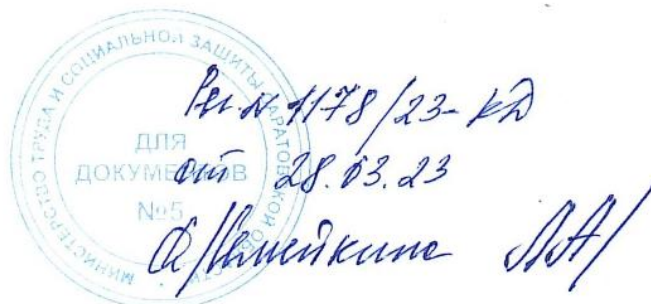 МИНИСТЕРСТВО ТРУДА И СОЦИАЛЬНОЙ ЗАЩИТЫ САРАТОВСКОЙ ОБЛАСТИ
ДЛЯ
ДОКУМЕНТОВ
№5
Рег. № 1178/23-КД
от 28.03.23